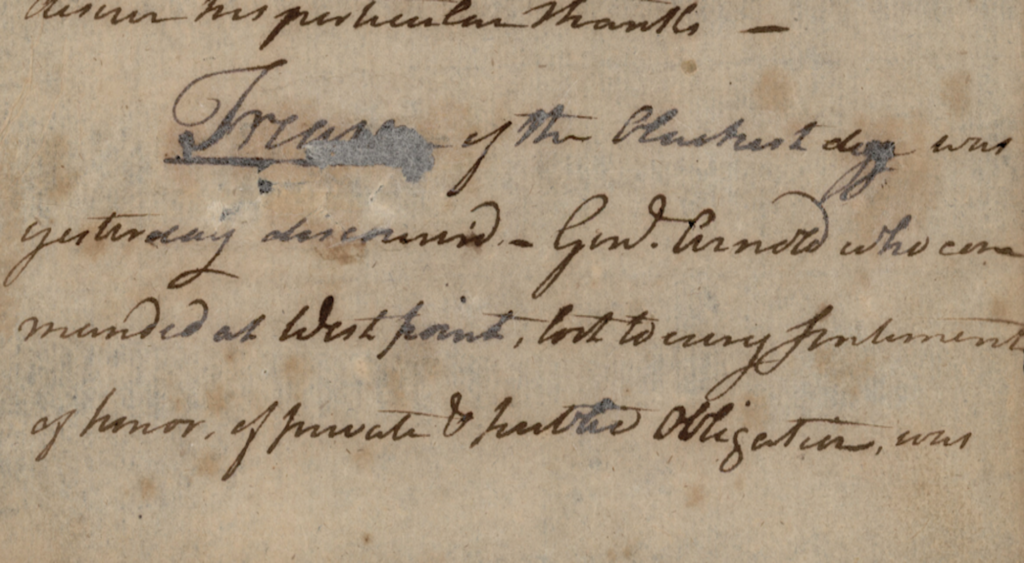 his particular thanks —
Treason of the blackest dye was
yesterday discovered. – Genl. Arnold who com
manded at West point, lost to every sentiment
of honor, of private & public obligation, was